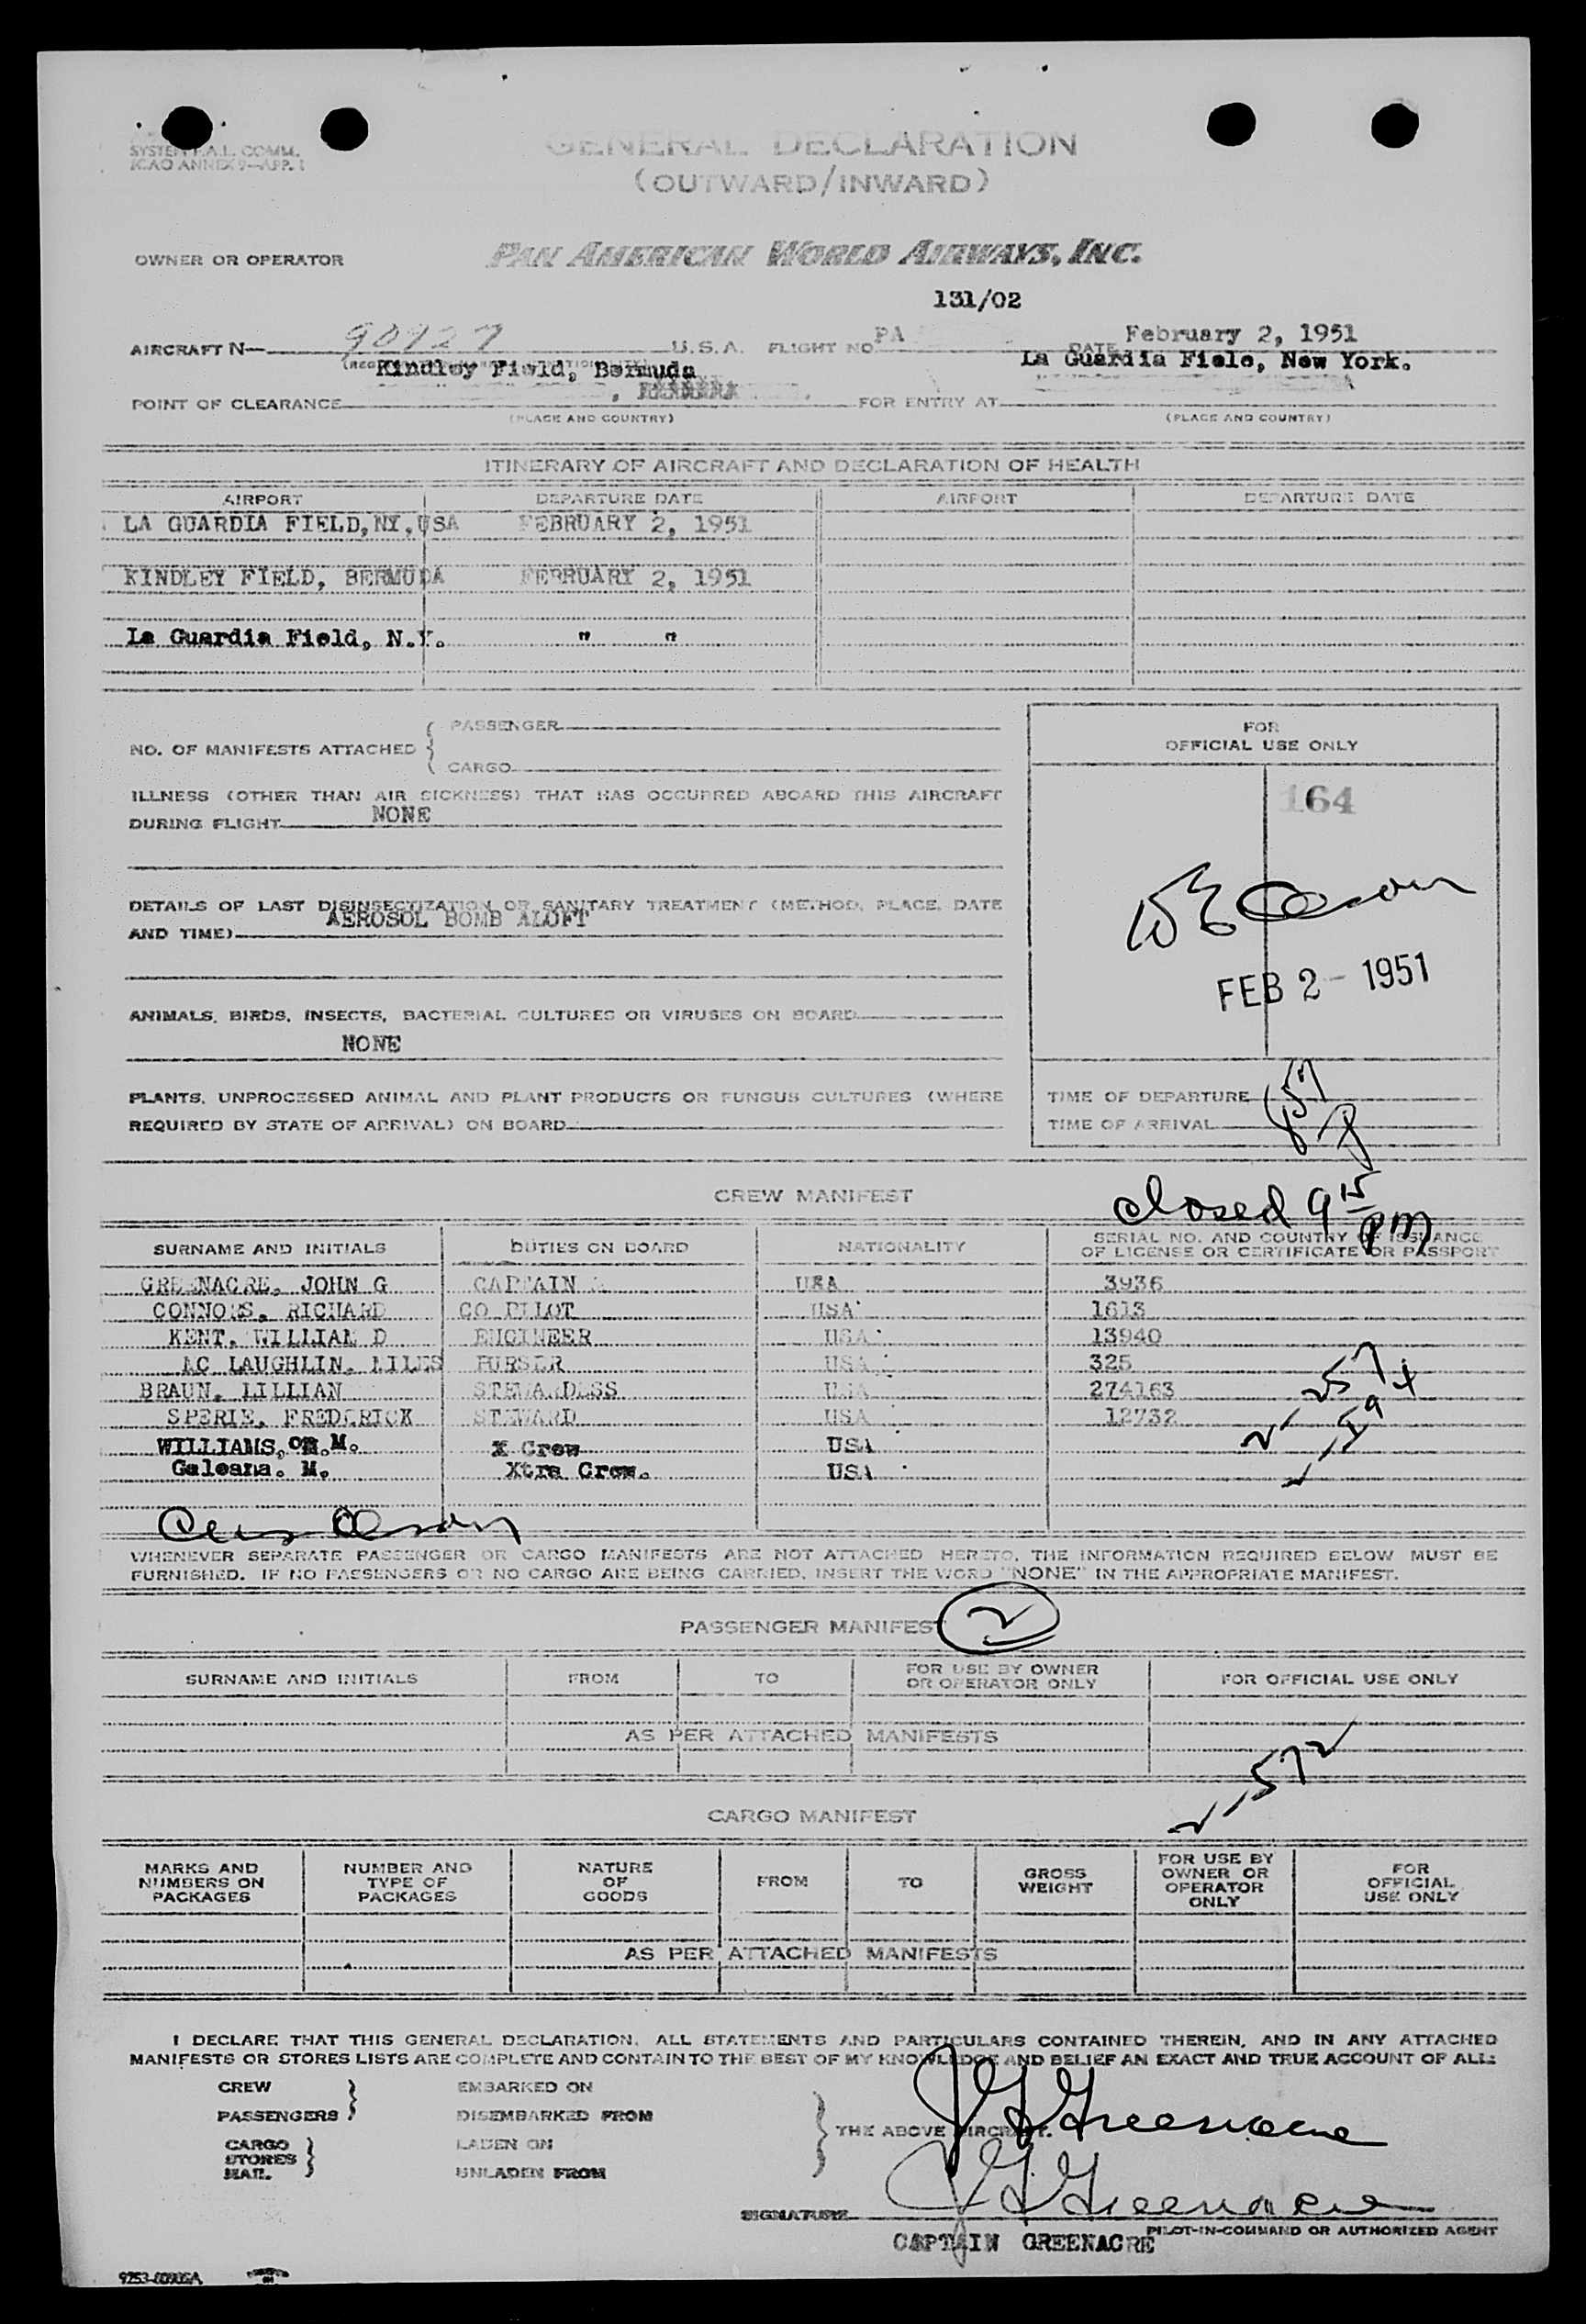 SYSTEM F.A.L. COMM.
ICAO ANNEX 9—APP. 1
GENERAL DECLARATION
(OUTWARD/INWARD)
OWNER OR OPERATOR PAN AMERICAN WORLD AIRWAYS, INC.
131/02
AIRCRAFT N— 90927 U.S.A. FLIGHT NO PA DATE February 2, 1951
Kindley Field, Bermuda La Guardia Fiele, New York.
POINT OF CLEARANCE FOR ENTRY AT
(PLACE AND COUNTRY) (PLACE AND COUNTRY)
ITINERARY OF AIRCRAFT AND DECLARATION OF HEALTH
AIRPORT DEPARTURE DATE AIRPORT DEPARTURE DATE
LA GUARDIA FIELD,NY,USA FEBRUARY 2, 1951
KINDLEY FIELD, BERMUDA FEBRUARY 2, 1951
La Guardia Field, N.Y. " "
NO. OF MANIFESTS ATTACHED { PASSENGER
CARGO
ILLNESS (OTHER THAN AIR SICKNESS) THAT HAS OCCURRED ABOARD THIS AIRCRAFT
DURING FLIGHT NONE
DETAILS OF LAST DISINSECTIZATION OR SANITARY TREATMENT (METHOD, PLACE, DATE
AND TIME) AEROSOL BOMB ALOFT
ANIMALS, BIRDS, INSECTS, BACTERIAL CULTURES OR VIRUSES ON BOARD
NONE
PLANTS, UNPROCESSED ANIMAL AND PLANT PRODUCTS OR FUNGUS CULTURES (WHERE
REQUIRED BY STATE OF ARRIVAL) ON BOARD
FOR
OFFICIAL USE ONLY
164
FEB 2 - 1951
TIME OF DEPARTURE
TIME OF ARRIVAL
closed 9 15 pm
CREW MANIFEST
SURNAME AND INITIALS DUTIES ON BOARD NATIONALITY SERIAL NO. AND COUNTRY OF ISSUANCE
OF LICENSE OR CERTIFICATE OR PASSPORT
GREENACRE, JOHN G CAPTAIN USA 3936
CONNORS, RICHARD CO PILOT USA 1613
KENT, WILLIAM D ENGINEER USA 13940
MC LAUGHLIN, MILES PURSER USA 325
BRAUN, LILLIAN STEWARDESS USA 274163
SPERIE, FREDERICK STEWARD USA 12732
WILLIAMS, M. X Crew USA
Galeana. M. Xtra Crew. USA
WHENEVER SEPARATE PASSENGER OR CARGO MANIFESTS ARE NOT ATTACHED HERETO, THE INFORMATION REQUIRED BELOW MUST BE
FURNISHED. IF NO PASSENGERS OR NO CARGO ARE BEING CARRIED, INSERT THE WORD "NONE" IN THE APPROPRIATE MANIFEST.
PASSENGER MANIFEST 2
SURNAME AND INITIALS FROM TO FOR USE BY OWNER
OR OPERATOR ONLY FOR OFFICIAL USE ONLY
AS PER ATTACHED MANIFESTS
CARGO MANIFEST
MARKS AND
NUMBERS ON
PACKAGES
NUMBER AND
TYPE OF
PACKAGES
NATURE
OF
GOODS
FROM
TO
GROSS
WEIGHT
FOR USE BY
OWNER OR
OPERATOR
ONLY
FOR
OFFICIAL
USE ONLY
AS PER ATTACHED MANIFESTS
I DECLARE THAT THIS GENERAL DECLARATION, ALL STATEMENTS AND PARTICULARS CONTAINED THEREIN, AND IN ANY ATTACHED
MANIFESTS OR STORES LISTS ARE COMPLETE AND CONTAIN TO THE BEST OF MY KNOWLEDGE AND BELIEF AN EXACT AND TRUE ACCOUNT OF ALL:
CREW EMBARKED ON
PASSENGERS DISEMBARKED FROM
CARGO LADEN ON
STORES
MAIL UNLADEN FROM
THE ABOVE AIRCRAFT.
J G Greenacre
J G Greenacre
SIGNATURE
PILOT-IN-COMMAND OR AUTHORIZED AGENT
CAPTAIN GREENACRE